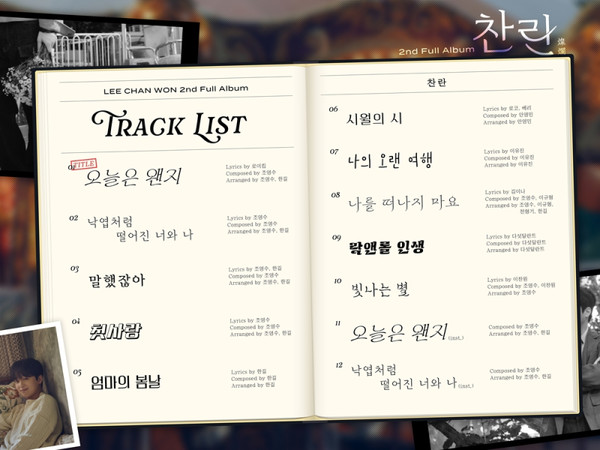 2nd Full Album 찬란
LEE CHAN WON 2nd Full Album
TRACK LIST
TITLE
오늘은 왠지
Lyrics by 로이킴
Composed by 조영수
Arranged by 조영수, 한길
02 낙엽처럼
떨어진 너와 나
Lyrics by 조영수
Composed by 조영수
Arranged by 조영수, 한길
03 말했잖아
Lyrics by 조영수, 한길
Composed by 조영수
Arranged by 조영수, 한길
04 첫사랑
Lyrics by 조영수
Composed by 조영수
Arranged by 조영수, 한길
05 엄마의 봄날
Lyrics by 한길
Composed by 한길
Arranged by 한길
찬란
06 시월의 시
Lyrics by 로코, 베리
Composed by 안영민
Arranged by 안영민
07 나의 오랜 여행
Lyrics by 이유진
Composed by 이유진
Arranged by 이유진
08 나를 떠나지 마요
Lyrics by 김이나
Composed by 조영수, 이규형
Arranged by 조영수, 이규형,
09 락앤롤 인생
Lyrics by 다섯달란트
Composed by 다섯달란트
Arranged by 다섯달란트
10 빛나는 별
Lyrics by 이찬원
Composed by 조영수, 이찬원
Arranged by 조영수
11 오늘은 왠지 (Inst.)
Composed by 조영수
Arranged by 조영수, 한길
12 낙엽처럼
떨어진 너와 나 (Inst.)
Composed by 조영수
Arranged by 조영수, 한길